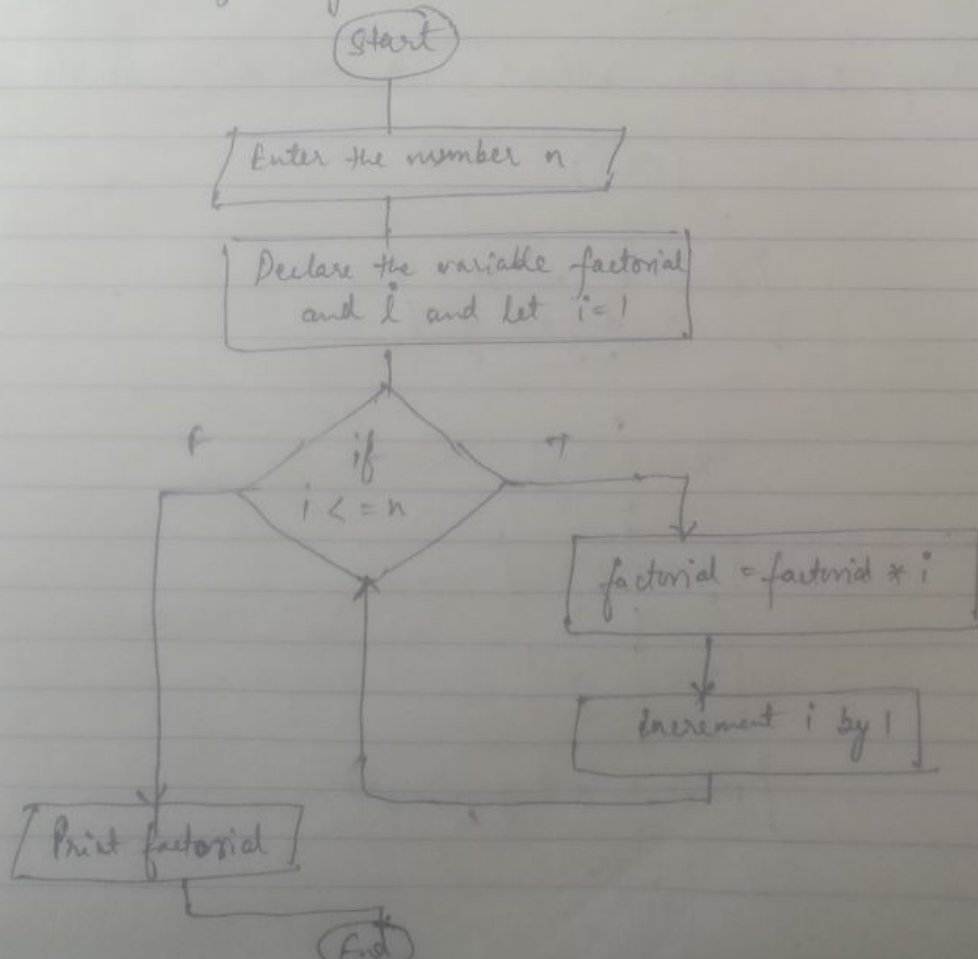 Start
Enter the number n
Declare the variable factorial
and i and let i = 1
F
if
T
i < = n
factorial = factorial * i
increment i by 1
Print factorial
End